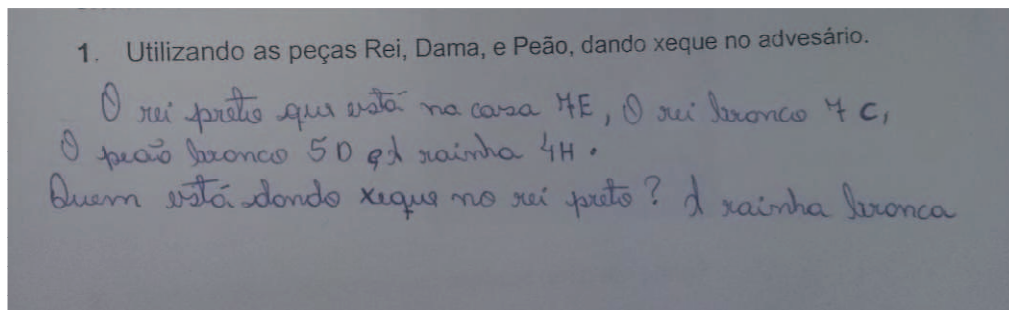 1. Utilizando as peças Rei, Dama, e Peão, dando xeque no advesário.
O rei preto que está na casa 7E, O rei bronco 7 C,
O peão bronco 5D e A rainha 4H.
Quem está dondo xeque no rei preto? A rainha bronca